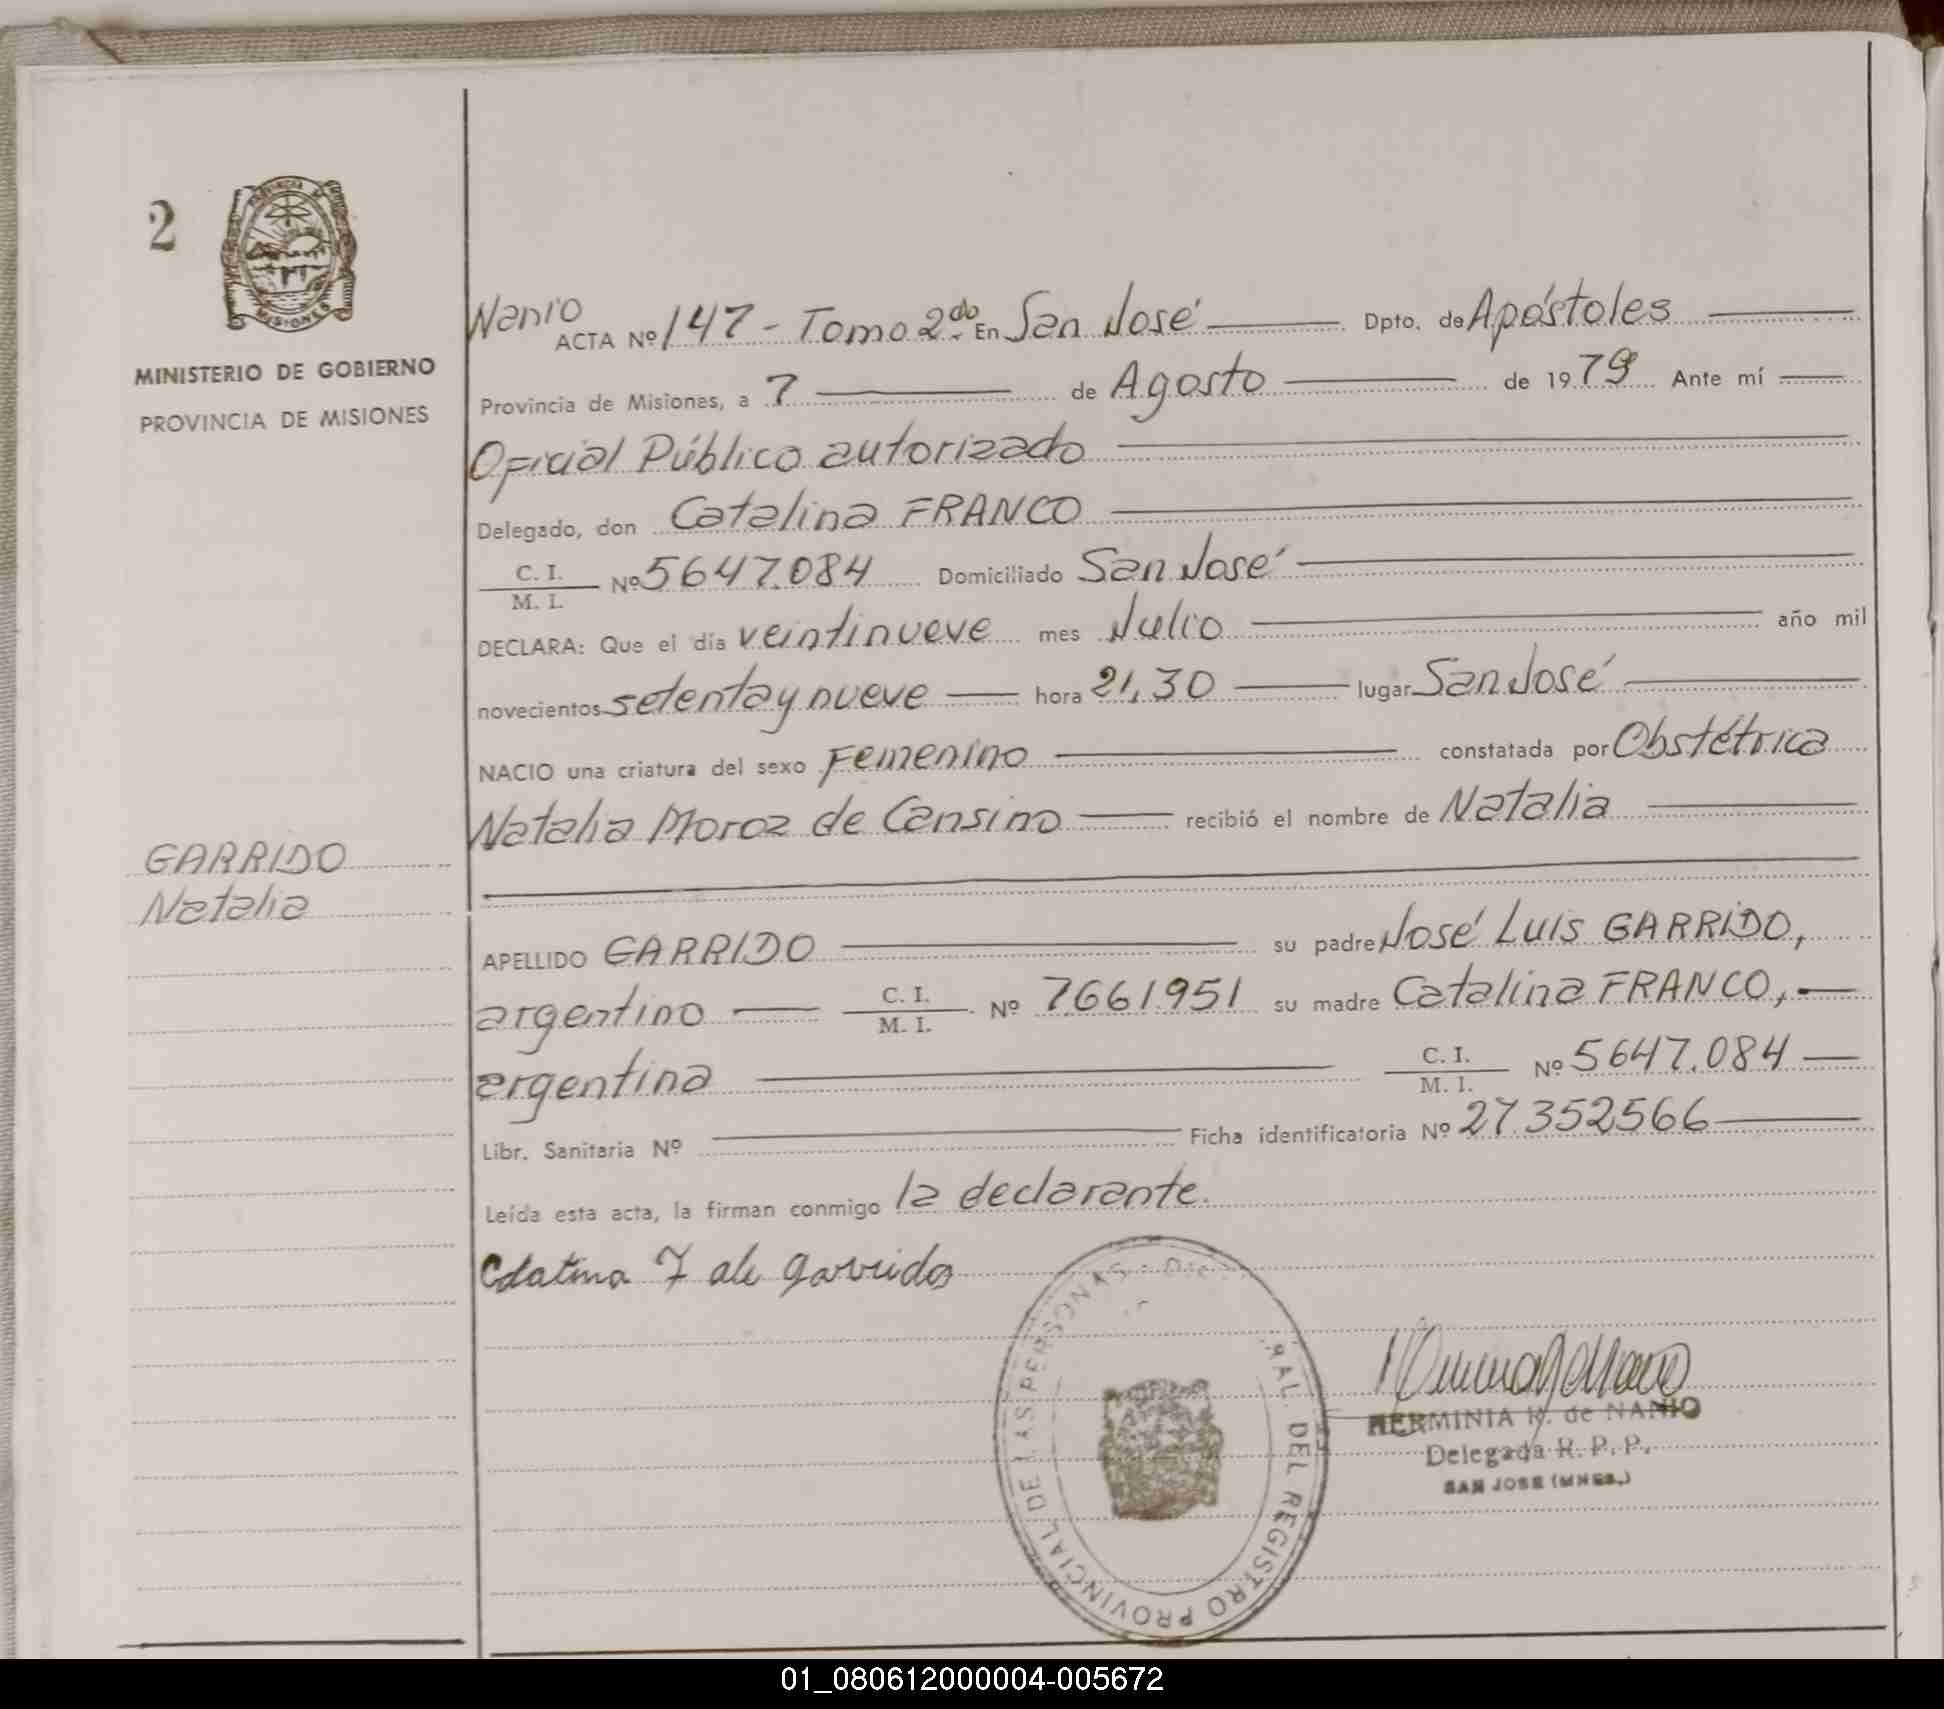 2
MISIONES
MINISTERIO DE GOBIERNO
PROVINCIA DE MISIONES
GARRIDO
Natalia
Nanio
ACTA Nº 147 - Tomo 2do. En San José Dpto. de Apóstoles
Provincia de Misiones, a 7 de Agosto de 1979 Ante mí
Oficial Público autorizado
Delegado, don Catalina FRANCO
C. I.
M. I. Nº 5647.084 Domiciliado San José
DECLARA: Que el día veintinueve mes Julio año mil
novecientos setenta y nueve hora 21,30 lugar San José
NACIO una criatura del sexo Femenino constatada por Obstétrica
Natalia Moroz de Cansino recibió el nombre de Natalia
APELLIDO GARRIDO su padre José Luis GARRIDO,
argentino C. I. M. I. Nº 7.661.951 su madre Catalina FRANCO,
argentina C. I. M. I. Nº 5647.084
Libr. Sanitaria Nº Ficha identificatoria Nº 27.352566
Leída esta acta, la firman conmigo la declarante.
Catalina F de garrido
REGISTRO PROVINCIAL DE LAS PERSONAS
HERMINIA K. de NANIO
Delegada R. P. P.
SAN JOSE (MNES.)
01_080612000004-005672